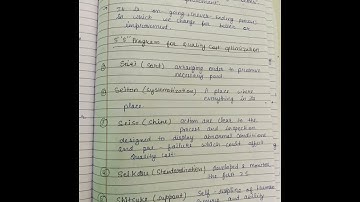 It is an going never ending process
in which we change for better or
improvement.
5'S' Program for Quality Cost optimization
Seiri (Sort) arranging order to prioritize
necessary part
Seiton (Systematization) A place where
everything in its
place.
③ Seiso (Shine) action are clear in the
process and inspection
designed to display abnormal conditions
and pre-failures which could affect
quality cost.
④ Seiketsu (Standardization) developed & monitor
the firm 3S.
Shitsuke (Support) Self-discipline of human